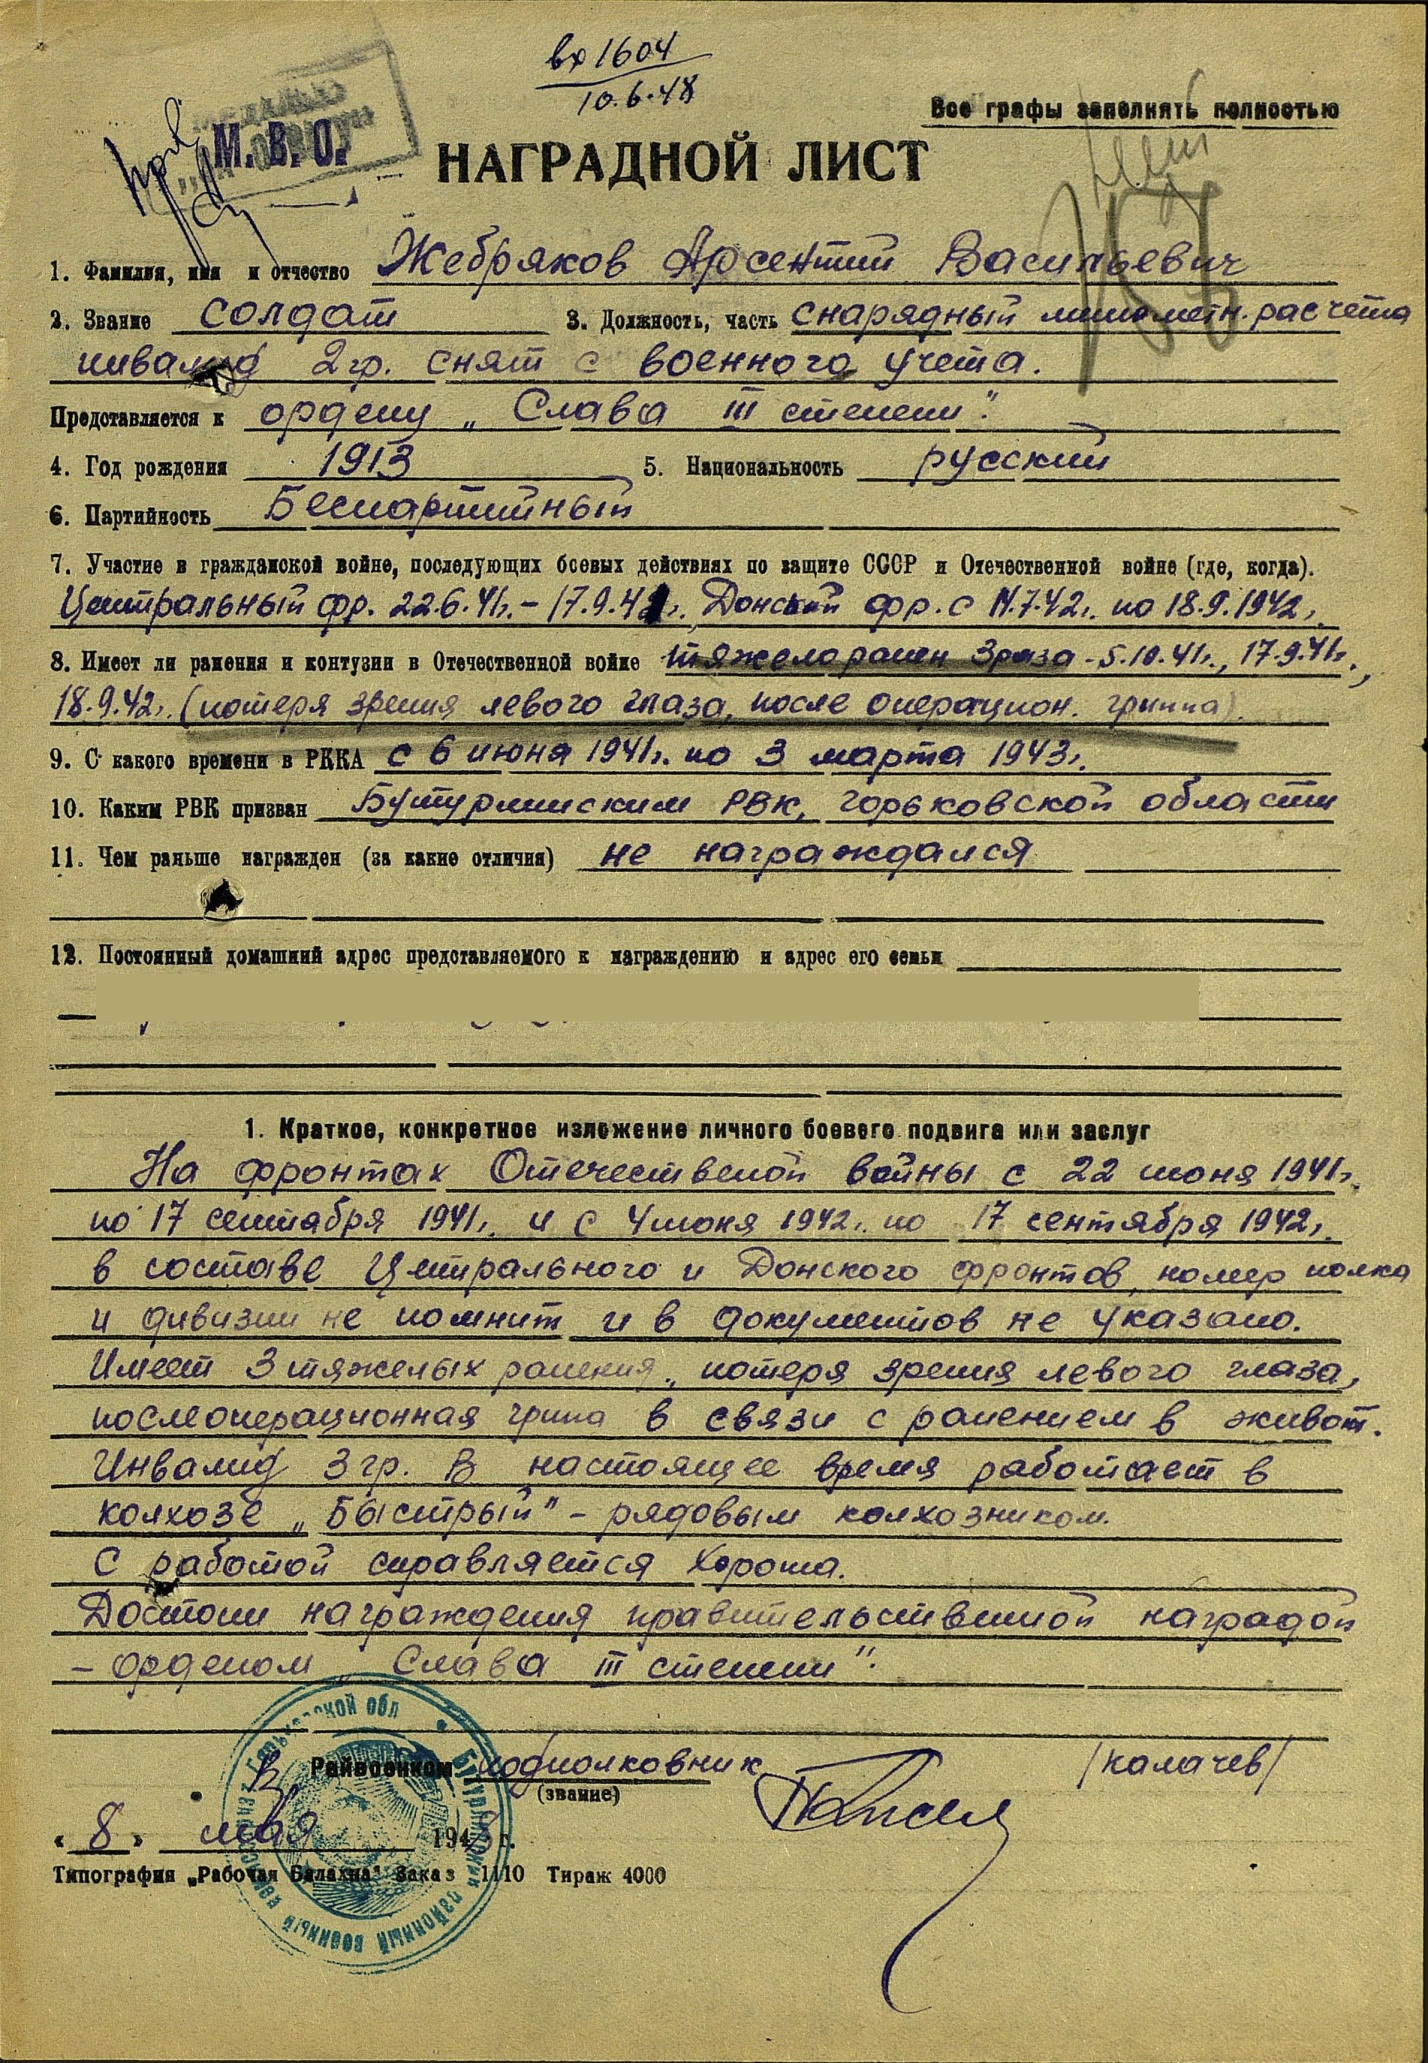 вх 1604
10.6.48
Все графы заполнять полностью
М. В. О.
НАГРАДНОЙ ЛИСТ
1. Фамилия, имя и отчество Жебряков Арсентий Васильевич
2. Звание солдат 3. Должность, часть снарядный минометн. расчета
инвалид 2 гр. снят с военного учета.
Представляется к ордену „Слава III степени".
4. Год рождения 1913 5. Национальность русский
6. Партийность Беспартийный
7. Участие в гражданской войне, последующих боевых действиях по защите СССР и Отечественной войне (где, когда).
Центральный фр. 22.6.41г. – 17.9.41г. Донской фр. с 4.7.42г. по 18.9.1942г.
8. Имеет ли ранения и контузии в Отечественной войне тяжело ранен 3 раза - 5.10.41г., 17.9.41г.,
18.9.42г. (потеря зрения левого глаза, после операцион. грыжа).
9. С какого времени в РККА с 6 июня 1941г. по 3 марта 1943г.
10. Каким РВК призван Бутурлинским РВК, Горьковской области
11. Чем раньше награжден (за какие отличия) не награждался
12. Постоянный домашний адрес представляемого к награждению и адрес его семьи
1. Краткое, конкретное изложение личного боевого подвига или заслуг
На фронтах Отечественой войны с 22 июня 1941г.
по 17 сентября 1941г. и с 4 июня 1942г. по 17 сентября 1942г.
в составе Центрального и Донского фронтов, номер полка
и дивизии не помнит и в документов не указано.
Имеет 3 тяжелых ранения, потеря зрения левого глаза,
послеоперационная грыжа в связи с ранением в живот.
Инвалид 3 гр. В настоящее время работает в
колхозе „Быстрый" – рядовым колхозником.
С работой справляется хорошо.
Достоин награждения правительственной наградой
– орденом „Слава III степени".
Райвоенком подполковник /Калачев/
(звание)
„8" мая 1948 г.
Типография „Рабочая Балахна" Заказ 1110 Тираж 4000
Бутурлинский районный военный комиссариат Горьковской обл